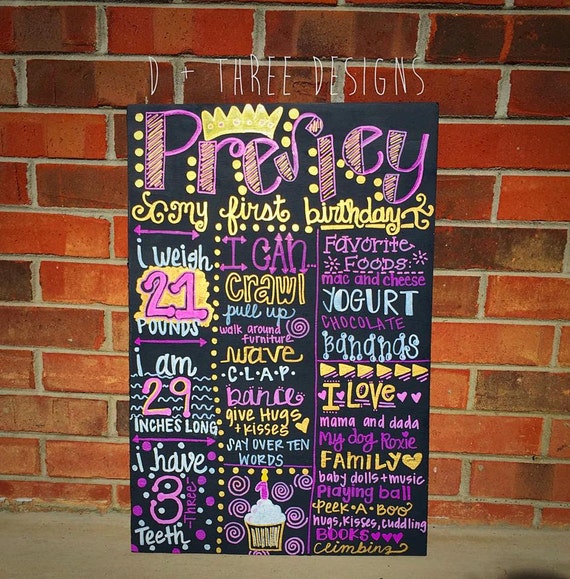 D + THREE DESIGNS
Presley
my first birthday
i weigh
21
POUNDS
i am
29
INCHES LONG
i have
3
Three
Teeth
I CAN...
Crawl
pull up
walk around
furniture
wave
C.L.A.P.
Dance
give Hugs
+ kisses
SAY OVER TEN
WORDS
1
Favorite
FOODS:
mac and cheese
YOGURT
CHOCOLATE
BANANAS
I LOVE
mama and dada
My dog Roxie
FAMILY
baby dolls + music
Playing ball
Peek-A-Boo
hugs, kisses, cuddling
BOOKS
Climbing